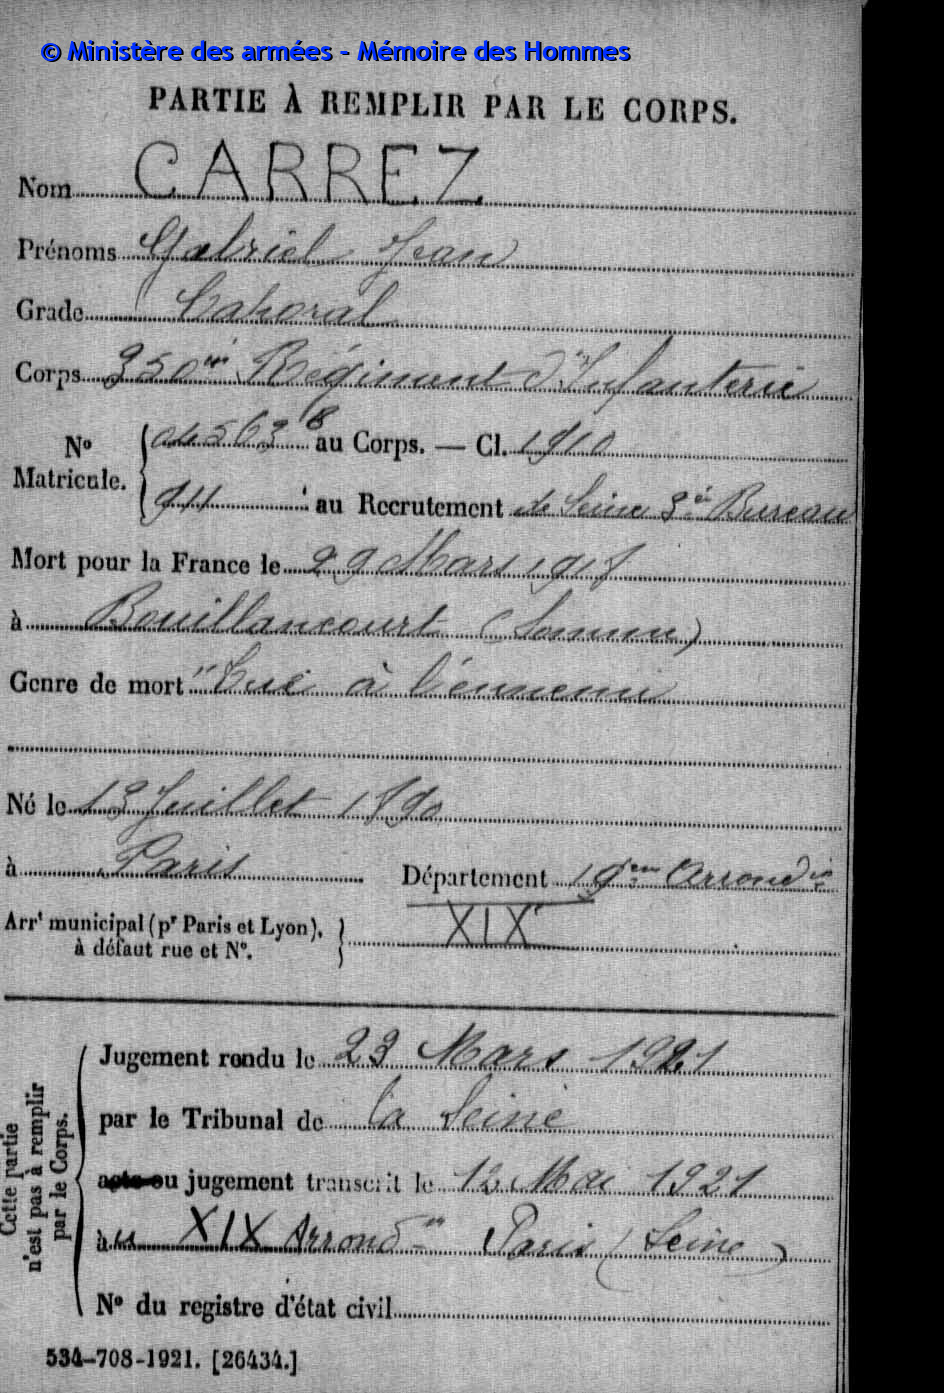 © Ministère des armées - Mémoire des Hommes
PARTIE À REMPLIR PAR LE CORPS.
Nom CARREZ
Prénoms Gabriel Jean
Grade Caporal
Corps 350me Régiment d'Infanterie
No Matricule. 045638 au Corps. — Cl. 1910
911 au Recrutement de Seine 3e Bureau
Mort pour la France le 29 Mars 1918
à Bouillancourt (Somme)
Genre de mort "Tué à l'ennemi
Né le 13 Juillet 1890
à Paris Département 19em Arrondis
Arrt municipal (pr Paris et Lyon), à défaut rue et No. XIXe
Cette partie n'est pas à remplir par le Corps.
Jugement rendu le 23 Mars 1921
par le Tribunal de la Seine
acte ou jugement transcrit le 12 Mai 1921
à u XIX Arrondt Paris (Seine)
No du registre d'état civil
534-708-1921. [26434.]